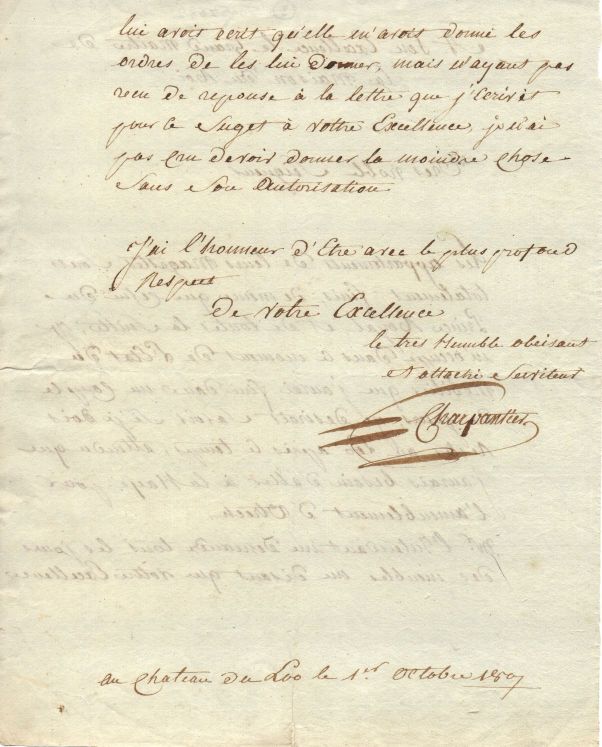 lui avoit ecrit qu'elle m'avoit donné les
ordres de les lui donner, mais n'ayant pas
recu de reponse à la lettre que j'ecrivit
pour ce Suget à votre Excellence, je n'ai
pas cru devoir donner la moindre chose
Sans Son autorisation
J'ai l'honneur d'Etre avec le plus profond
Respect
de votre Excellence
le tres Humble obeisant
& attaché Serviteur
Charpantier
au Chateau du Loo le 1er Octobre 1807